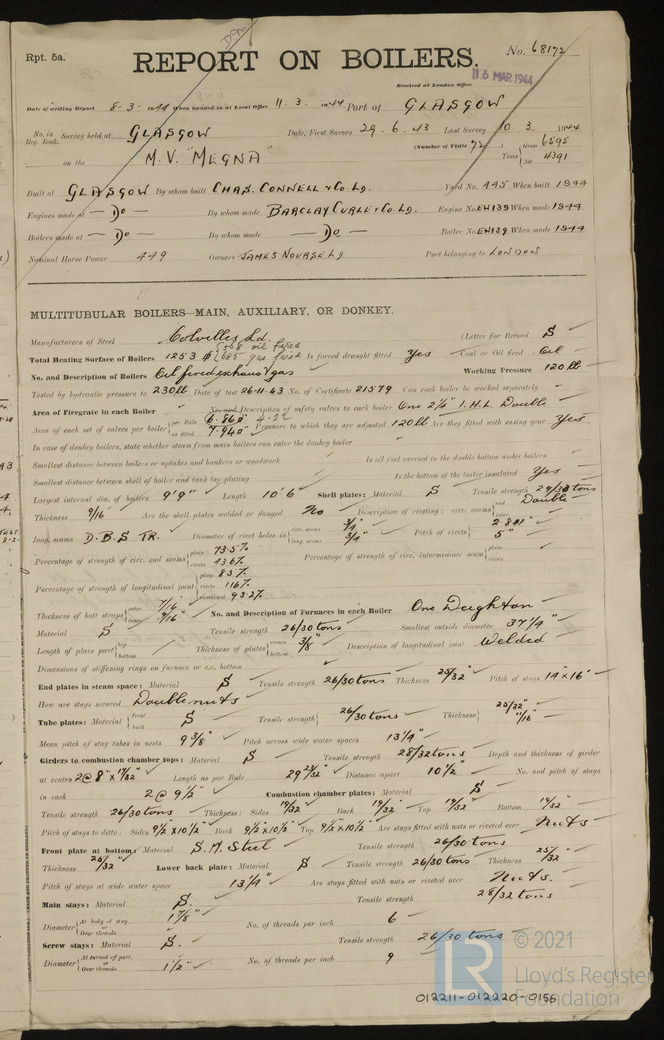 Rpt. 5a.
REPORT ON BOILERS.
No. 68172
Received at London Office
16 MAR 1944
Date of writing Report 8-3-1944 When handed in at Local Office 11.3.1944 Port of GLASGOW
No. in Reg. Book. Survey held at GLASGOW Date, First Survey 29.6.43 Last Survey 10.3.1944
(Number of Visits 72)
on the M.V. "MEGNA" Tons { Gross 6595 Net 4391
Built at GLASGOW By whom built CHAS. CONNELL & Co LD. Yard No. 445 When built 1944
Engines made at — Do — By whom made BARCLAY CURLE & Co. LD. Engine No. EW139 When made 1944
Boilers made at — Do — By whom made — Do — Boiler No. EW139 When made 1944
Nominal Horse Power 449 Owners JAMES NOURSE LD Port belonging to LONDON
MULTITUBULAR BOILERS—MAIN, AUXILIARY, OR DONKEY.
Manufacturers of Steel Colvilles Ld. (Letter for Record S
Total Heating Surface of Boilers 1253 568 oil fired 685 gas fired Is forced draught fitted Yes Coal or Oil fired Oil
No. and Description of Boilers Oil fired exhaust gas Working Pressure 120 lb
Tested by hydraulic pressure to 230 lb Date of test 26-11-43 No. of Certificate 21579 Can each boiler be worked separately
Area of Firegrate in each Boiler No. and Description of safety valves to each boiler One 2¼" I.H.L. Double
Area of each set of valves per boiler { per Rule 6.86 as fitted 7.94 Pressure to which they are adjusted 120 lb Are they fitted with easing gear Yes
In case of donkey boilers, state whether steam from main boilers can enter the donkey boiler
Smallest distance between boilers or uptakes and bunkers or woodwork Is oil fuel carried in the double bottom under boilers
Smallest distance between shell of boiler and tank top plating Is the bottom of the boiler insulated Yes
Largest internal dia. of boilers 9'9" Length 10'6" Shell plates: Material S Tensile strength 29/33 tons
Thickness 9/16" Are the shell plates welded or flanged No Description of riveting: circ. seams { end Double
long. seams D.B.S TR. Diameter of rivet holes in { circ. seams 3/4" long. seams 3/4" Pitch of rivets { 2.881" 5"
Percentage of strength of circ. end seams { plate 73.5% rivets 43.6% Percentage of strength of circ. intermediate seam { plate rivets
Percentage of strength of longitudinal joint { plate 85% rivets 116% combined 93.2%
Thickness of butt straps { outer 7/16" inner 9/16" No. and Description of Furnaces in each Boiler One Deighton
Material S Tensile strength 26/30 tons Smallest outside diameter 37¼"
Length of plain part { top bottom Thickness of plates { crown bottom 3/8" Description of longitudinal joint Welded
Dimensions of stiffening rings on furnace or c.c. bottom
End plates in steam space: Material S Tensile strength 26/30 tons Thickness 25/32" Pitch of stays 14" x 16"
How are stays secured Double nuts
Tube plates: Material { front back S Tensile strength { 26/30 tons Thickness { 25/32" 11/16"
Mean pitch of stay tubes in nests 9 3/8" Pitch across wide water spaces 13¼"
Girders to combustion chamber tops: Material S Tensile strength 28/32 tons Depth and thickness of girder
at centre 2 @ 8" x 17/32" Length as per Rule 29 23/32" Distance apart 10½" No. and pitch of stays
in each 2 @ 9½" Combustion chamber plates: Material S
Tensile strength 26/30 tons Thickness: Sides 19/32" Back 19/32" Top 19/32" Bottom 19/32"
Pitch of stays to ditto: Sides 9½" x 10½" Back 9½" x 10½" Top 9½" x 10½" Are stays fitted with nuts or riveted over Nuts
Front plate at bottom: Material S.M. Steel Tensile strength 26/30 tons
Thickness 25/32" Lower back plate: Material S Tensile strength 26/30 tons Thickness 25/32"
Pitch of stays at wide water space 13¼" Are stays fitted with nuts or riveted over Nuts.
Main stays: Material S. Tensile strength 28/32 tons
Diameter { At body of stay, or Over threads 1 7/8" No. of threads per inch 6
Screw stays: Material S. Tensile strength 26/30 tons
Diameter { At turned off part, or Over threads 1½" No. of threads per inch 9
© 2021
Lloyd's Register
Foundation
012211-012220-0156